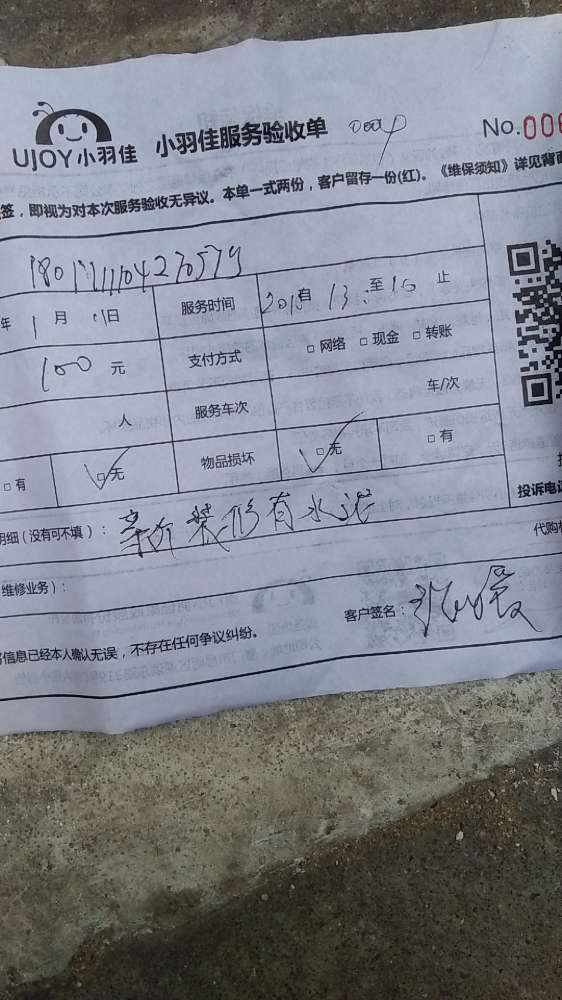 UJOY小羽佳 小羽佳服务验收单 No.006
签，即视为对本次服务验收无异议。本单一式两份，客户留存一份(红)。《维保须知》详见背面
年1月11日 服务时间 自13:至16止
100元 支付方式 □网络 □现金 □转账
人 服务车次 车/次
□有 □无 物品损坏 □无 □有
投诉电话
明细（没有可不填）： 新装修有水泥
代购
维修业务）：
客户签名：
信息已经本人确认无误，不存在任何争议纠纷。